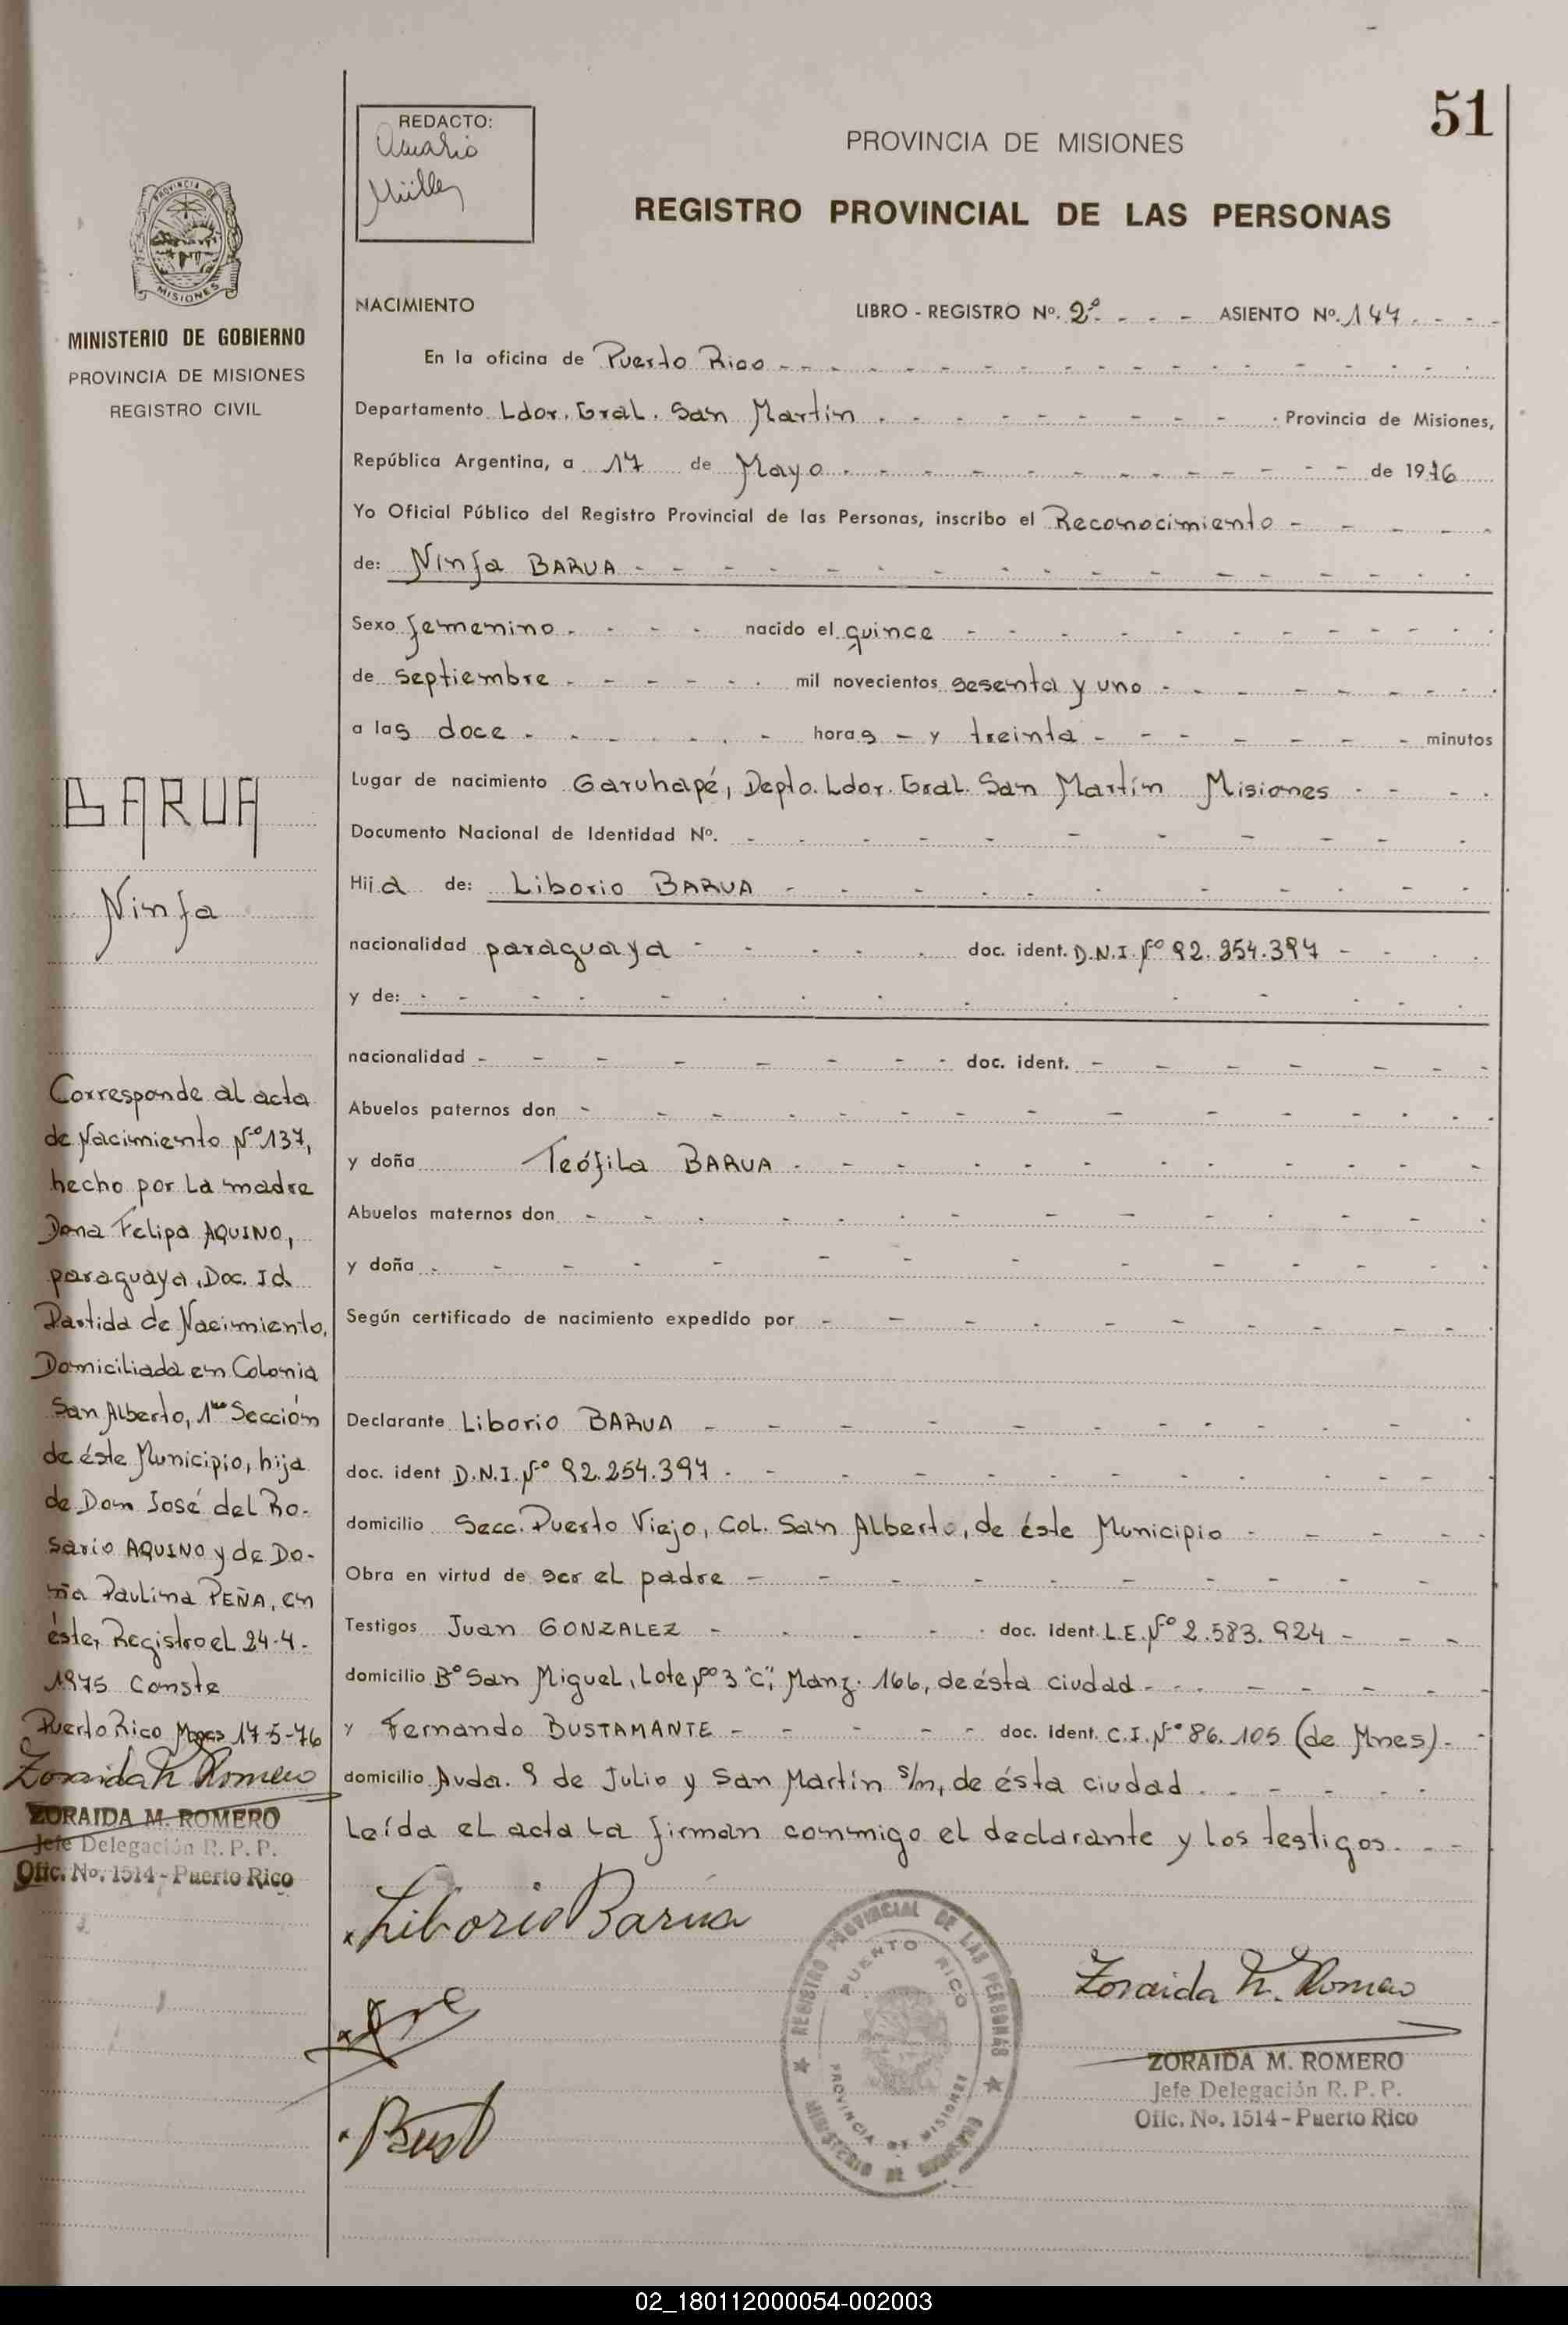 51
REDACTO:
Müller
PROVINCIA DE MISIONES
REGISTRO PROVINCIAL DE LAS PERSONAS
PROVINCIA DE
MISIONES
MINISTERIO DE GOBIERNO
PROVINCIA DE MISIONES
REGISTRO CIVIL
NACIMIENTO LIBRO - REGISTRO Nº. 2º. - - - ASIENTO Nº. 147. - - -
En la oficina de Puerto Rico
Departamento Ldor. Gral. San Martín Provincia de Misiones,
República Argentina, a 17 de Mayo de 1976
Yo Oficial Público del Registro Provincial de las Personas, inscribo el Reconocimiento
de: Ninfa BARUA
Sexo femenino nacido el quince
de septiembre mil novecientos sesenta y uno
a las doce horas - y treinta minutos
Lugar de nacimiento Garuhapé, Depto. Ldor. Gral. San Martín Misiones
Documento Nacional de Identidad Nº.
Hija de: Liborio BARUA
nacionalidad paraguaya doc. ident. D.N.I. Nº 92.254.397
y de:
nacionalidad doc. ident.
Abuelos paternos don
y doña Teófila BARUA
Abuelos maternos don
y doña
Según certificado de nacimiento expedido por
Declarante Liborio BARUA
doc. ident D.N.I. Nº 92.254.397
domicilio Secc. Puerto Viejo, Col. San Alberto, de éste Municipio
Obra en virtud de ser el padre
Testigos Juan GONZALEZ doc. ident. L.E. Nº 2.583.924
domicilio Bº San Miguel, Lote Nº 3 "C", Manz. 166, de ésta ciudad
y Fernando BUSTAMANTE doc. ident. C.I. Nº 86.105 (de Mnes)
domicilio Avda. 9 de Julio y San Martín s/n, de ésta ciudad
Leída el acta la firman conmigo el declarante y los testigos.
BARUA
Ninfa
Corresponde al acta
de Nacimiento Nº 137,
hecho por la madre
Dona Felipa AQUINO,
paraguaya, Doc. Id
Partida de Nacimiento,
Domiciliada en Colonia
San Alberto, 1ra Sección
de éste Municipio, hija
de Don José del Ro-
sario AQUINO y de Do-
ña Paulina PEÑA, en
éste, Registro el 24-4-
1975 Conste
Puerto Rico Mnes 17-5-76
Zoraida M. Romero
ZORAIDA M. ROMERO
Jefe Delegación R. P. P.
Ofic. No. 1514 - Puerto Rico
Liborio Barua
Bust
REGISTRO PROVINCIAL DE LAS PERSONAS
PUERTO RICO
PROVINCIA DE MISIONES
MINISTERIO DE GOBIERNO
Zoraida M. Romero
ZORAIDA M. ROMERO
Jefe Delegación R. P. P.
Ofic. No. 1514 - Puerto Rico
02_180112000054-002003